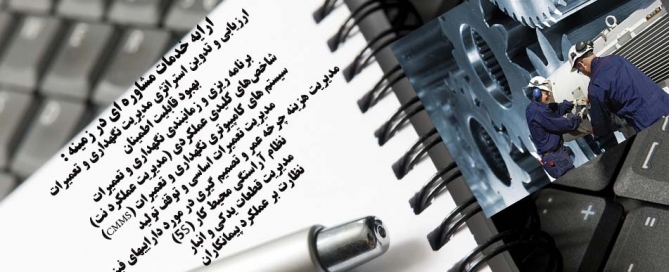 ارایه خدمات مشاوره ای در زمینه :
ارزیابی و تدوین استراتژی مدیریت نگهداری و تعمیرات
بهبود قابلیت اطمینان
برنامه ریزی و زمانبندی نگهداری و تعمیرات
شاخص‌های کلیدی عملکردی (مدیریت عملکرد نت)
سیستم های کامپیوتری نگهداری و تعمیرات (CMMS)
مدیریت تعمیرات اساسی و توقف تولید
مدیریت هزینه چرخه عمر و تصمیم گیری در مورد داراییهای
نظام آراستگی محیط کار (5S)
مدیریت قطعات یدکی و انبار
نظارت بر عملکرد پیمانکاران